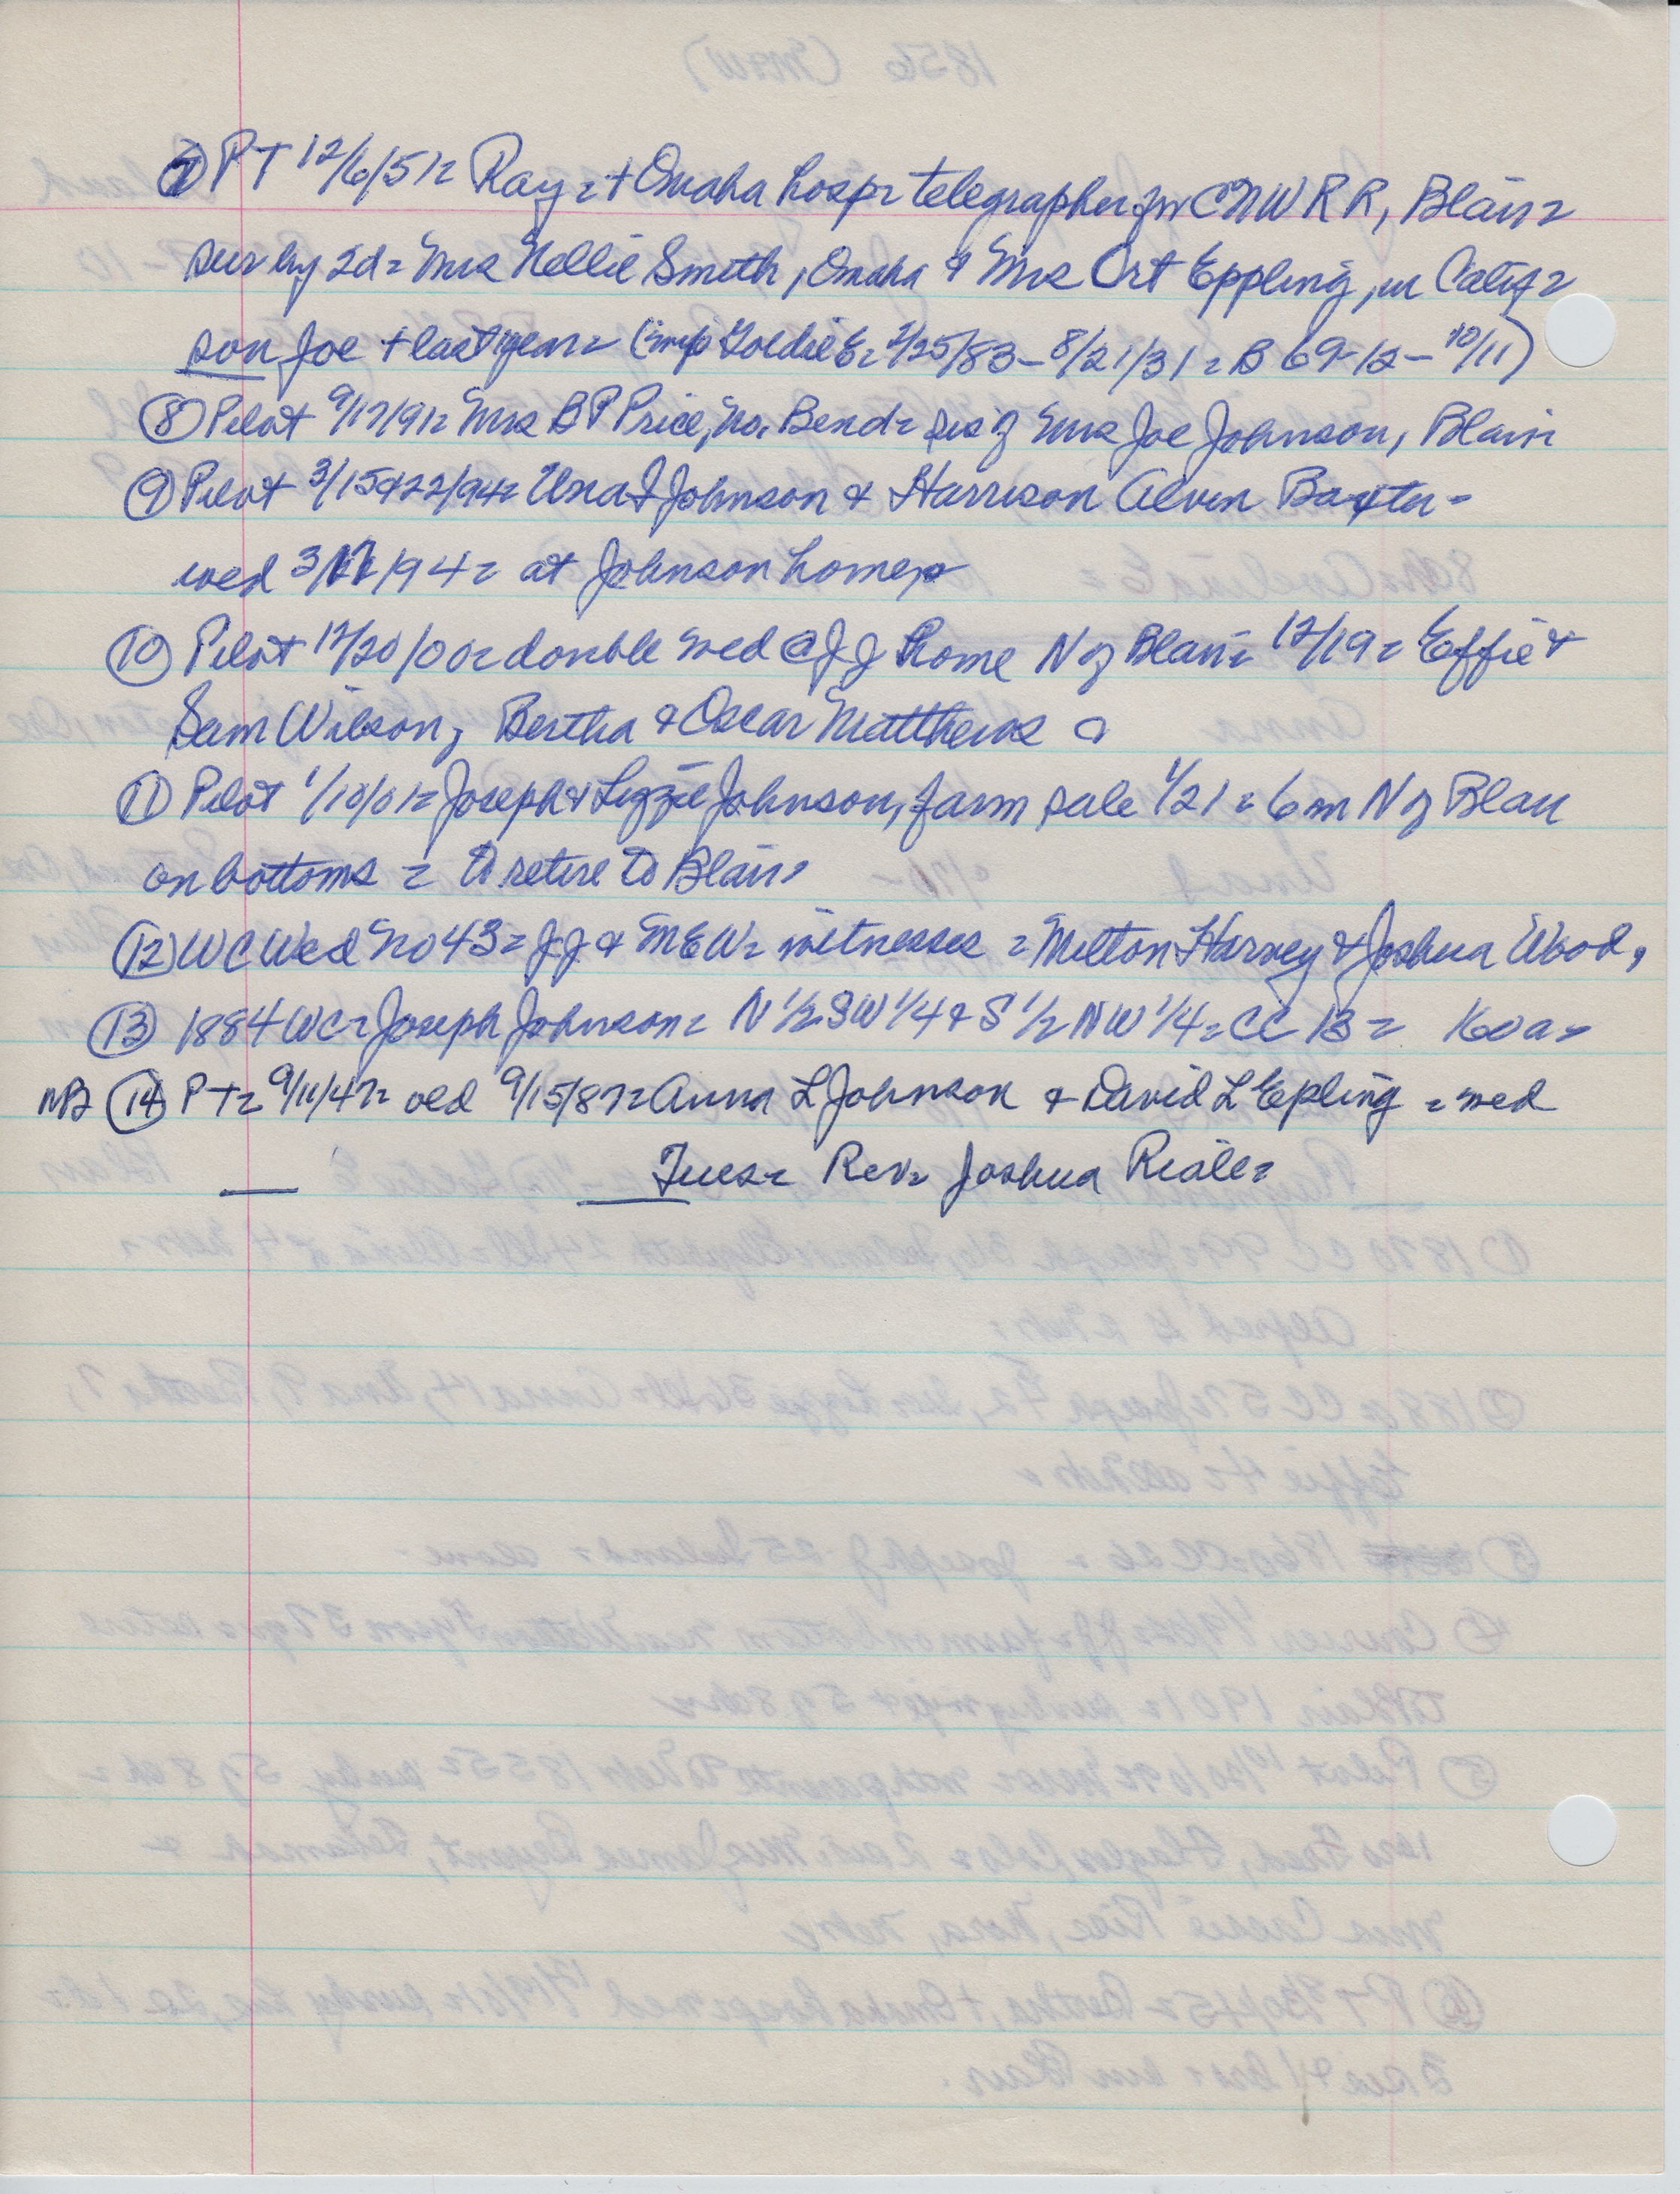 ⑦ PT 12/6/51 = Ray = + Omaha hosp = telegrapher for CNW RR, Blair =
sur by 2d = Mrs Nellie Smith, Omaha & Mrs Ort Eppling, in Calif =
son Joe + last year = (wife Goldie E = 2/25/83 – 8/21/31 = B 69-12 – 10/11)
⑧ Pilot 9/17/91 = Mrs B P Price, No. Bend = sis of Mrs Joe Johnson, Blair
⑨ Pilot 3/15&22/94 = Una I Johnson & Harrison Alven Baxter =
wed 3/ /94 = at Johnson home
⑩ Pilot 12/20/00 = double wed @ JJ home N of Blair = 12/19 = Effie &
Sam Wilson, Bertha & Oscar Matthews
⑪ Pilot 1/10/01 = Joseph & Lizzie Johnson, farm sale 1/21 = 6 m N of Blair
on bottoms = to retire to Blair =
⑫ WC Wed No 43 = JJ & MEW = witnesses = Milton Harvey & Joshua Wood,
⑬ 1884 WC = Joseph Johnson = N 1/2 SW 1/4 & S 1/2 NW 1/4 = CC 13 = 160 a =
⑭ PT = 9/11/47 = wed 9/15/87 = Anna L Johnson & David L Epling = wed
Tues = Rev = Joshua Riale =